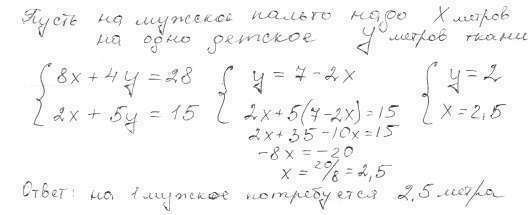 Пусть на мужское пальто надо X метров
на одно детское y метров ткани
{ 8x + 4y = 28 { y = 7 - 2x { y = 2
2x + 5y = 15 2x + 5(7 - 2x) = 15 x = 2,5
2x + 35 - 10x = 15
-8x = -20
x = 20/8 = 2,5
Ответ: на 1 мужское потребуется 2,5 метра